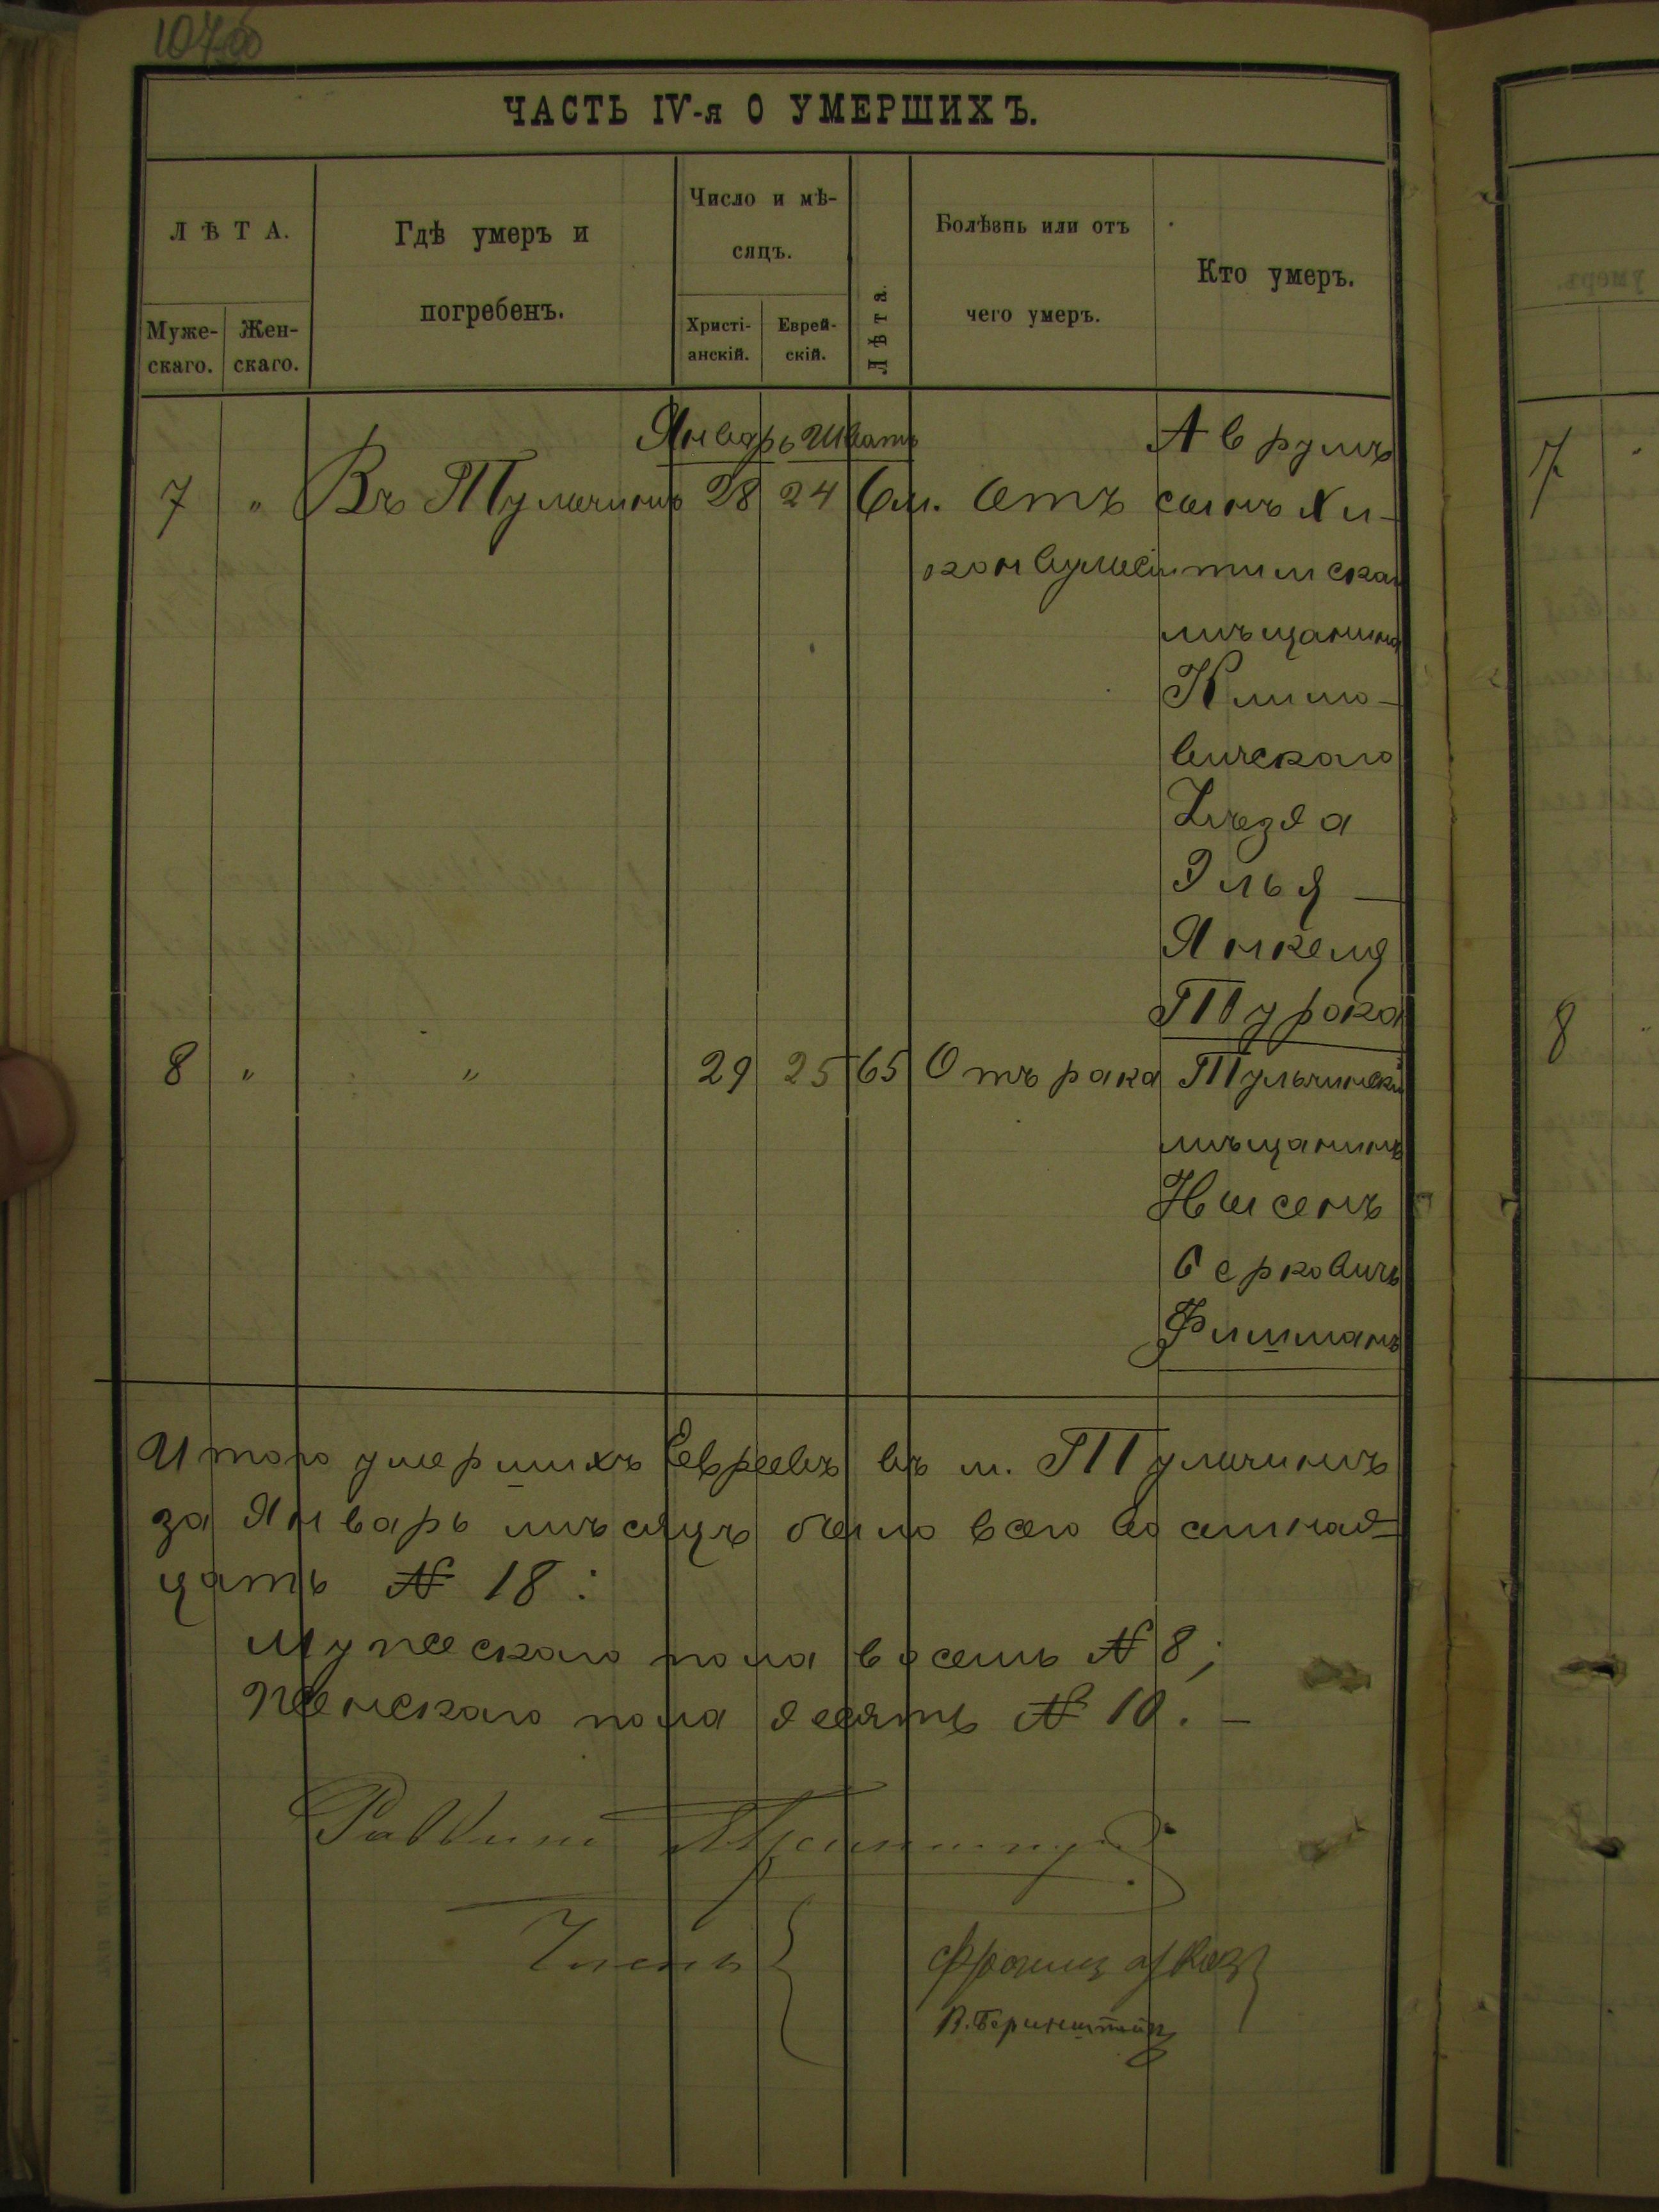 ЧАСТЬ IV-я О УМЕРШИХЪ.
ЛѢТА.
Муже-
скаго.
Жен-
скаго.
Гдѣ умеръ и
погребенъ.
Число и мѣ-
сяцъ.
Христі-
анскій.
Еврей-
скій.
Лѣта.
Болѣзнь или отъ
чего умеръ.
Кто умеръ.
Январь Шватъ Аврумъ
7 " Въ Тульчинѣ 28 24 6м. Отъ сынъ Хи-
конвульсіи тимскаго
мѣщанина
Климо-
вичскаго
Уѣзда
Элья —
Янкеля
Турока
8 " " 29 25 65 Отъ рака Тульчинскій
мѣщанинъ
Нысенъ
Берковичъ
Фишманъ
Итого умершихъ Евреевъ въ м. Тульчинѣ
за Январь мѣсяцъ было всего восемнад=
цать № 18:
Мужескаго пола восемь № 8;
Женскаго пола десять № 10. —
Раввинъ
Члены
В. Беринштейн
7
8